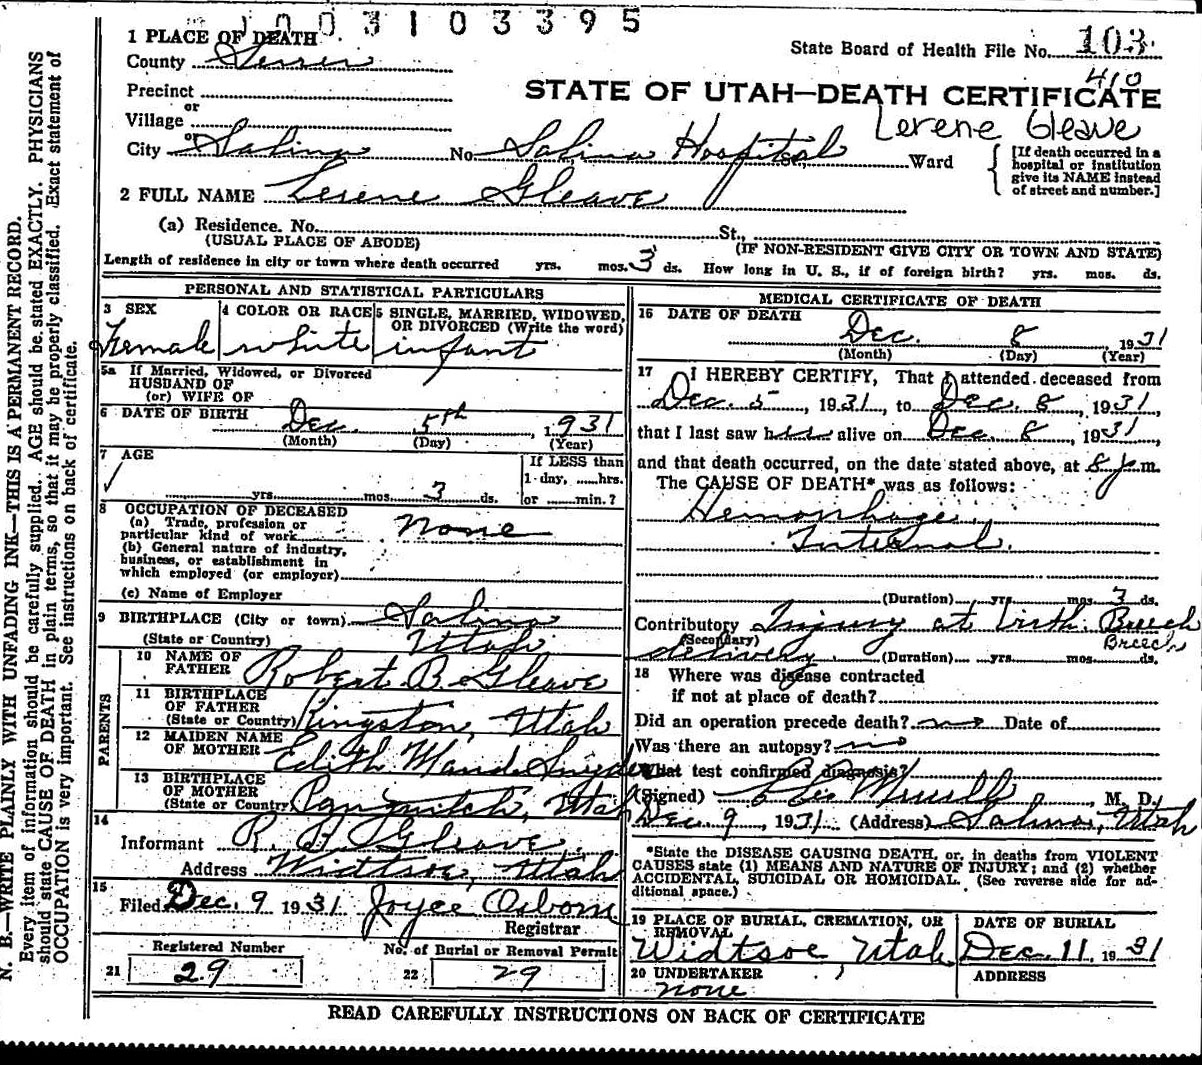 1003103395
1 PLACE OF DEATH
State Board of Health File No. 103
410
County Sevier
STATE OF UTAH—DEATH CERTIFICATE
Precinct
or
Village
Lerene Gleave
or
City Salina No. Salina Hospital St., Ward
[If death occurred in a
hospital or institution
give its NAME instead
of street and number.]
2 FULL NAME Lerene Gleave
(a) Residence. No. St.,
(USUAL PLACE OF ABODE) (IF NON-RESIDENT GIVE CITY OR TOWN AND STATE)
Length of residence in city or town where death occurred yrs. mos. 3 ds. How long in U. S., if of foreign birth? yrs. mos. ds.
PERSONAL AND STATISTICAL PARTICULARS
3 SEX
Female
4 COLOR OR RACE
white
5 SINGLE, MARRIED, WIDOWED,
OR DIVORCED (Write the word)
infant
5a If Married, Widowed, or Divorced
HUSBAND OF
(or) WIFE OF
6 DATE OF BIRTH Dec. 5th, 1931
(Month) (Day) (Year)
7 AGE
If LESS than
1 day, ......hrs.
yrs. mos. 3 ds. or ......min.?
8 OCCUPATION OF DECEASED
(a) Trade, profession or
particular kind of work None
(b) General nature of industry,
business, or establishment in
which employed (or employer)
(c) Name of Employer
9 BIRTHPLACE (City or town) Salina
(State or Country) Utah
PARENTS
10 NAME OF
FATHER Robert B. Gleave
11 BIRTHPLACE
OF FATHER
(State or Country) Kingston, Utah
12 MAIDEN NAME
OF MOTHER Edith Maud Snyder
13 BIRTHPLACE
OF MOTHER
(State or Country) Panguitch, Utah
14
Informant R. B. Gleave
Address Widtsoe, Utah
15
Filed Dec. 9 1931 Joyce Osborn
Registrar
Registered Number
21 29
No. of Burial or Removal Permit
22 29
MEDICAL CERTIFICATE OF DEATH
16 DATE OF DEATH
Dec. 8 1931
(Month) (Day) (Year)
17 I HEREBY CERTIFY, That I attended deceased from
Dec. 5, 1931, to Dec. 8, 1931,
that I last saw her alive on Dec. 8, 1931,
and that death occurred, on the date stated above, at 8 p.m.
The CAUSE OF DEATH* was as follows:
Hemorrhage
Internal.
(Duration) yrs. mos. 3 ds.
Contributory Injury at birth. Breech
(Secondary) Breech
delivery (Duration) yrs. mos. ds.
18 Where was disease contracted
if not at place of death?
Did an operation precede death? no Date of
Was there an autopsy? no
What test confirmed diagnosis?
(Signed) M. D.
Dec 9, 1931 (Address) Salina, Utah
*State the DISEASE CAUSING DEATH, or, in deaths from VIOLENT
CAUSES state (1) MEANS AND NATURE OF INJURY; and (2) whether
ACCIDENTAL, SUICIDAL OR HOMICIDAL. (See reverse side for ad-
ditional space.)
19 PLACE OF BURIAL, CREMATION, OR
REMOVAL
Widtsoe, Utah
DATE OF BURIAL
Dec. 11, 1931
20 UNDERTAKER
none
ADDRESS
READ CAREFULLY INSTRUCTIONS ON BACK OF CERTIFICATE
N. B.—WRITE PLAINLY WITH UNFADING INK—THIS IS A PERMANENT RECORD.
Every item of information should be carefully supplied. AGE should be stated EXACTLY. PHYSICIANS
should state CAUSE OF DEATH in plain terms, so that it may be properly classified. Exact statement of
OCCUPATION is very important. See instructions on back of certificate.